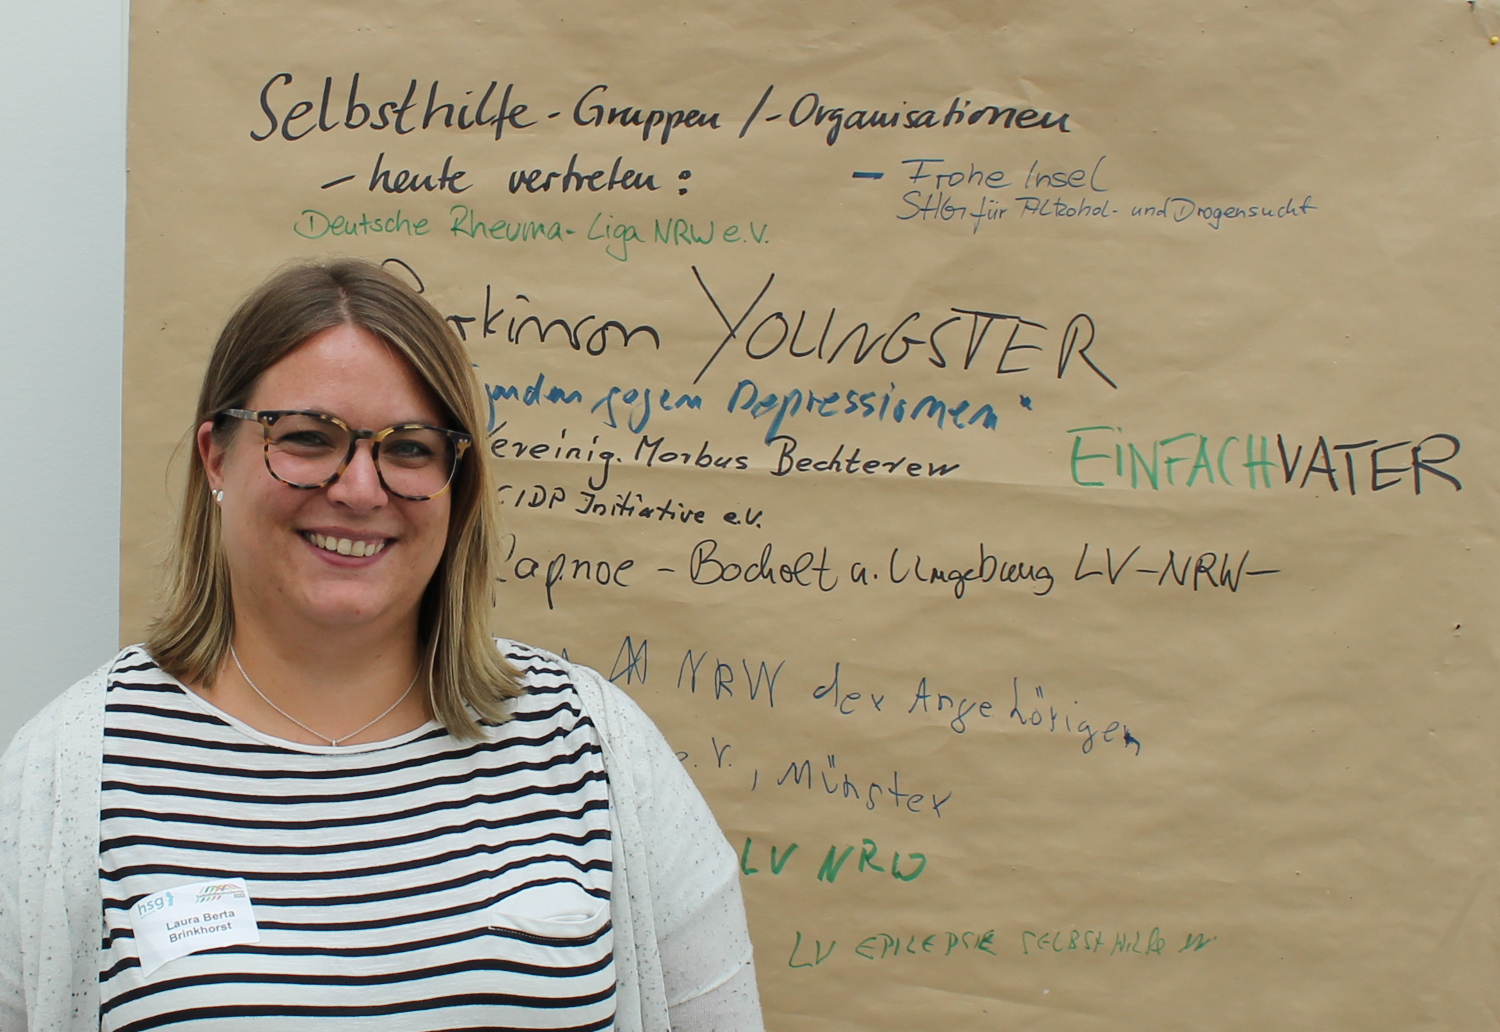 Selbsthilfe-Gruppen /-Organisationen
- heute vertreten:
- Frohe Insel
SHG für Alkohol- und Drogensucht
Deutsche Rheuma-Liga NRW e.V.
Parkinson YOUNGSTER
gegen Depressionen"
Vereinig. Morbus Bechterew
EiNFACHVATER
CIDP Initiative e.V.
- Bocholt u. Umgebung LV-NRW-
NRW der Angehörigen
e.V., Münster
LV NRW
LV EPILEPSIE SELBSTHILFE
hsg
Laura Berta
Brinkhorst